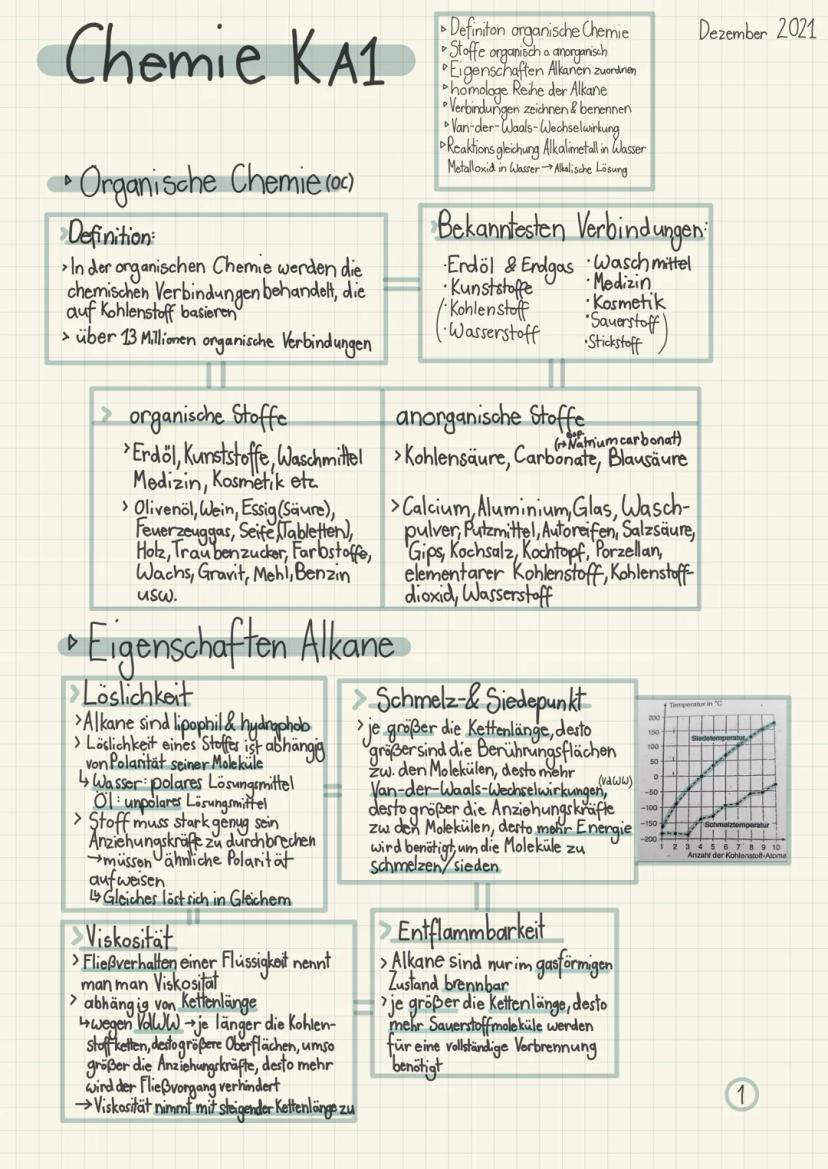 Chemie KA1
Dezember 2021
▹ Definiton organische Chemie
▹ Stoffe organisch o. anorganisch
▹ Eigenschaften Alkanen zuordnen
▹ homologe Reihe der Alkane
▹ Verbindungen zeichnen & benennen
▹ Van-der-Waals-Wechselwirkung
▹ Reaktionsgleichung Alkalimetall in Wasser
Metalloxid in Wasser → Alkalische Lösung
▹ Organische Chemie (OC)
> Definition:
> In der organischen Chemie werden die
chemischen Verbindungen behandelt, die
auf Kohlenstoff basieren
> über 13 Millionen organische Verbindungen
> Bekanntesten Verbindungen:
· Erdöl & Erdgas
· Kunststoffe
(· Kohlenstoff
· Wasserstoff
· Waschmittel
· Medizin
· Kosmetik
· Sauerstoff
· Stickstoff)
> organische Stoffe
> Erdöl, Kunststoffe, Waschmittel
Medizin, Kosmetik etc.
> Olivenöl, Wein, Essig (Säure),
Feuerzeuggas, Seife (Tabletten),
Holz, Traubenzucker, Farbstoffe,
Wachs, Gravit, Mehl, Benzin
usw.
anorganische Stoffe
(→ Natriumcarbonat)
> Kohlensäure, Carbonate, Blausäure
> Calcium, Aluminium, Glas, Wasch-
pulver, Putzmittel, Autoreifen, Salzsäure,
Gips, Kochsalz, Kochtopf, Porzellan,
elementarer Kohlenstoff, Kohlenstoff-
dioxid, Wasserstoff
▹ Eigenschaften Alkane
> Löslichkeit
> Alkane sind lipophil & hydrophob
> Löslichkeit eines Stoffes ist abhängig
von Polarität seiner Moleküle
↳ Wasser: polares Lösungsmittel
Öl: unpolares Lösungsmittel
> Stoff muss stark genug sein
Anziehungskräfte zu durchbrechen
→ müssen ähnliche Polarität
aufweisen
↳ Gleiches löst sich in Gleichem
> Schmelz- & Siedepunkt
> je größer die Kettenlänge, desto
größer sind die Berührungsflächen
zw. den Molekülen, desto mehr
Van-der-Waals-Wechselwirkungen, (VdWW)
desto größer die Anziehungskräfte
zw. den Molekülen, desto mehr Energie
wird benötigt, um die Moleküle zu
schmelzen/sieden
Temperatur in °C
200
150
100
50
0
−50
−100
−150
−200
Siedetemperatur
Schmelztemperatur
1 2 3 4 5 6 7 8 9 10
Anzahl der Kohlenstoff-Atome
> Viskosität
> Fließverhalten einer Flüssigkeit nennt
man man Viskosität
> abhängig von Kettenlänge
↳ wegen VdWW → je länger die Kohlen-
stoffketten, desto größere Oberflächen, umso
größer die Anziehungskräfte, desto mehr
wird der Fließvorgang verhindert
→ Viskosität nimmt mit steigender Kettenlänge zu
> Entflammbarkeit
> Alkane sind nur im gasförmigen
Zustand brennbar
> je größer die Kettenlänge, desto
mehr Sauerstoffmoleküle werden
für eine vollständige Verbrennung
benötigt
1